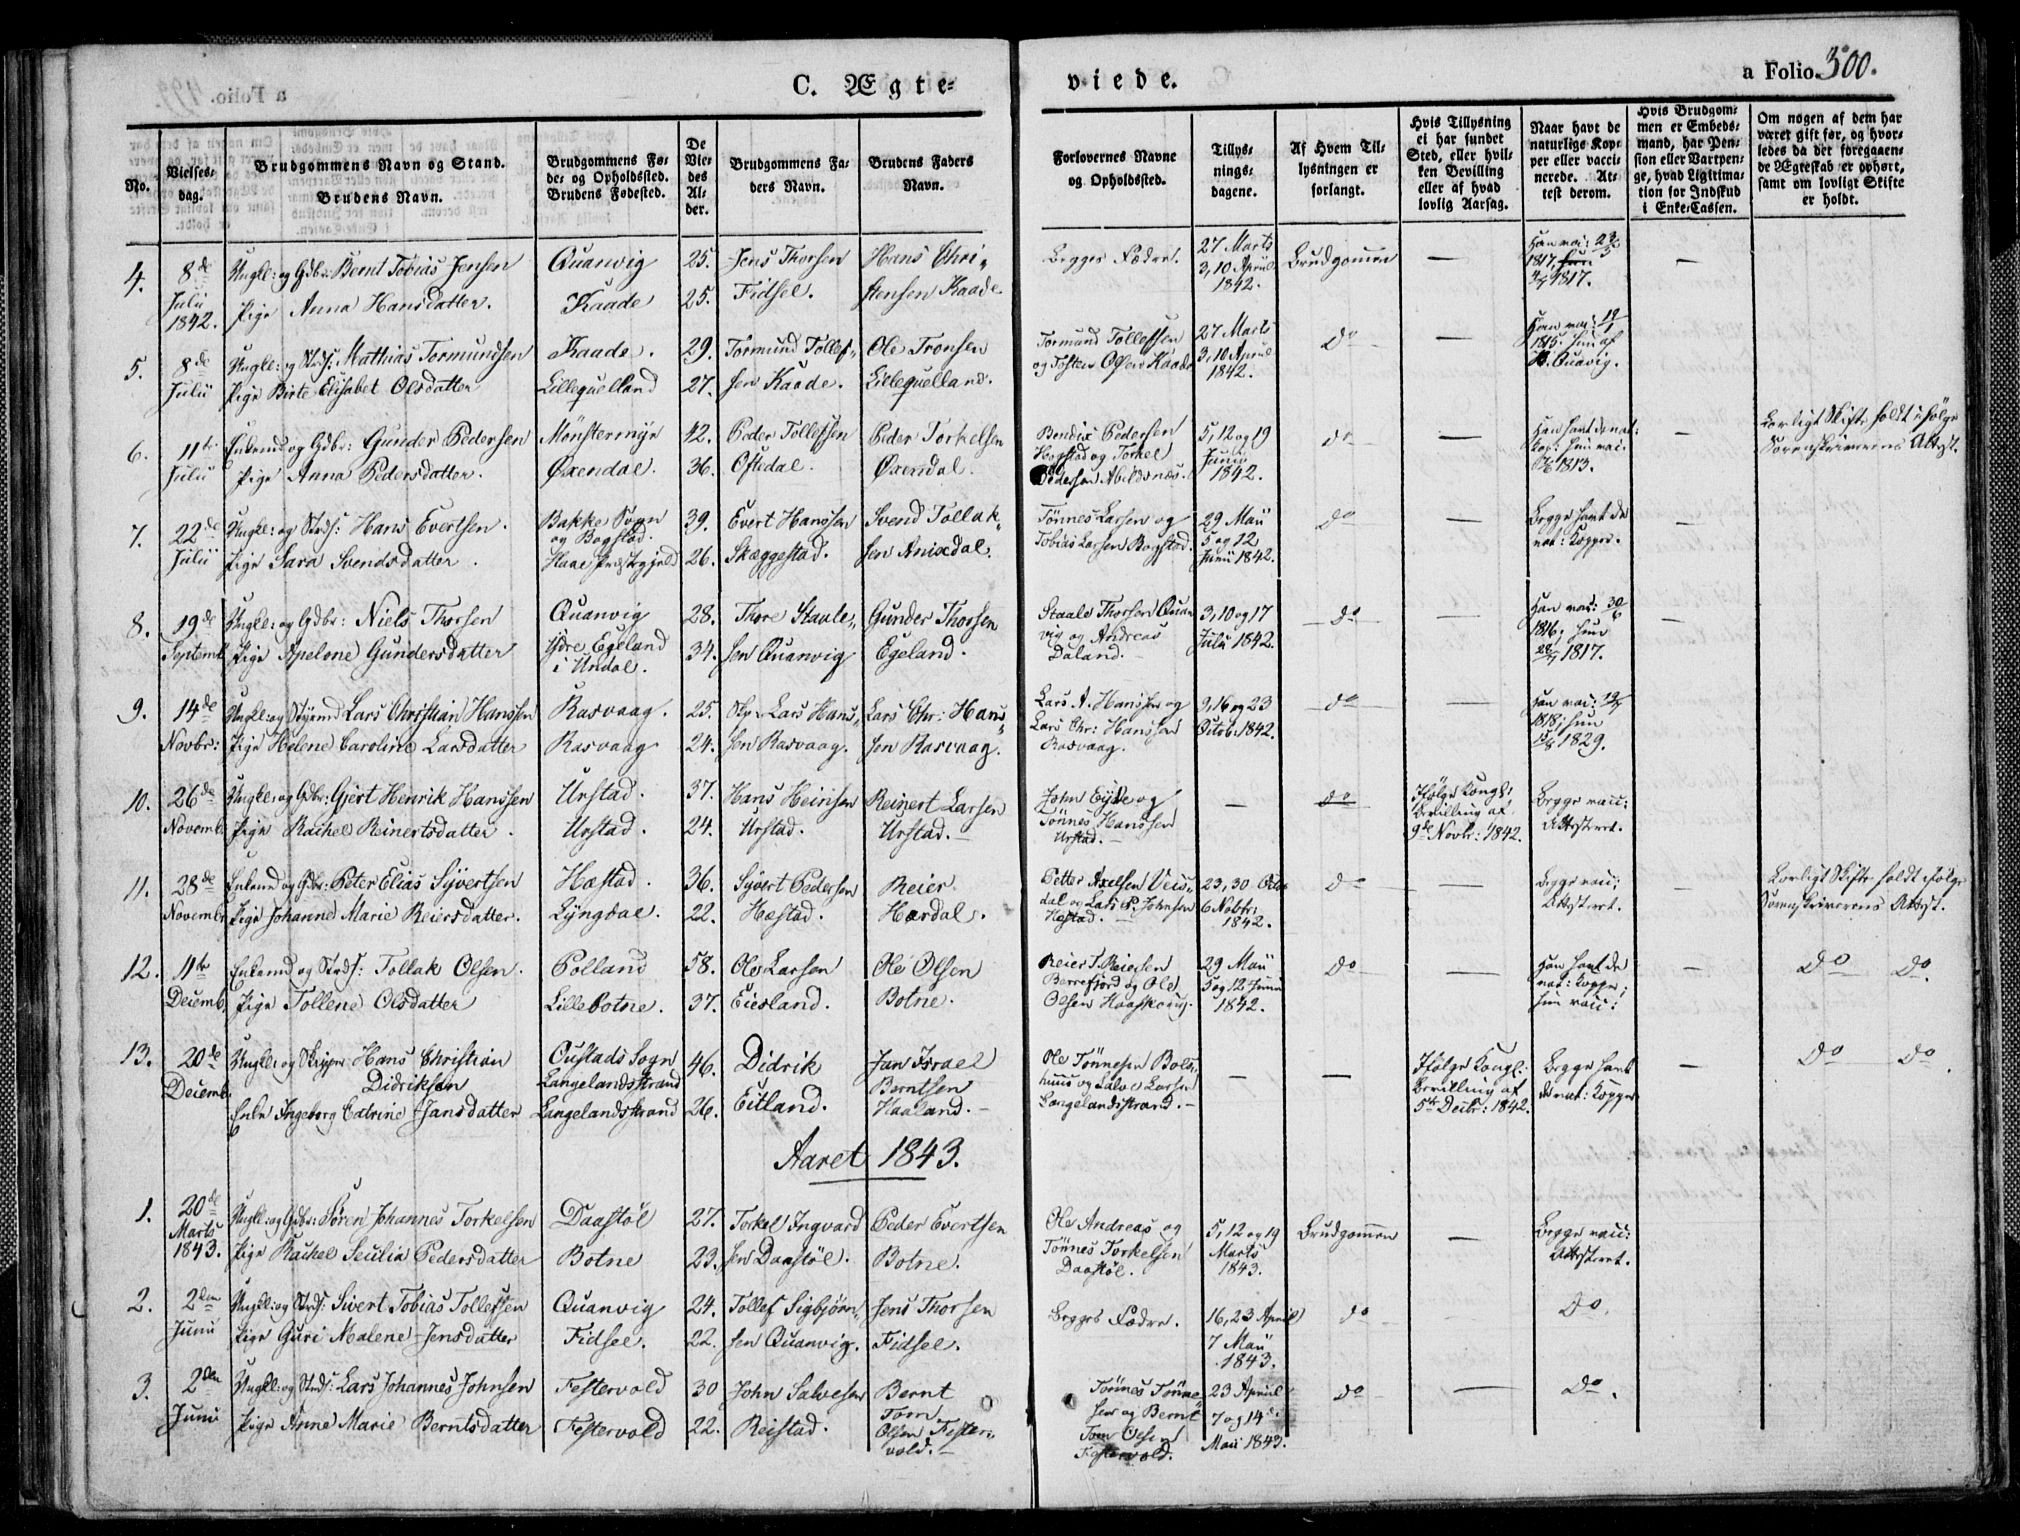 C. Ægte-
viede.
a Folio 300.
No.
Vielses-
dag.
Brudgommens Navn og Stand.
Brudens Navn.
Brudgommens Fø-
de- og Opholdssted.
Brudens Fødested.
De
Vie-
des
Al-
der.
Brudgommens Fa-
ders Navn.
Brudens Faders
Navn.
Forlovernes Navne
og Opholdssted.
Tillys-
nings-
dagene.
Af Hvem Til-
lysningen er
forlangt.
Hvis Tillysning
ei har fundet
Sted, eller hvil-
ken Bevilling
eller af hvad
lovlig Aarsag.
Naar havt de
naturlige Kop-
per eller vacci-
nerede. At-
test derom.
Hvis Brudgom-
men er Embeds-
mand, har Pen-
sion eller Vartpen-
ge, hvad Ligitima-
tion for Indskud
i Enke-Cassen.
Om nogen af dem har
været gift før, og hvor-
ledes da det foregaaen-
de Ægteskab er ophørt,
samt om lovligt Skifte
er holdt.
4.
8de
Julii
1842.
Ungkl: og Gdbr: Bernt Tobias Jensen
Pige Anna Hansdatter.
Quanvig
Kaade
25.
25.
Jens Thorsen
Fidsel.
Hans Chri-
stensen Kaade
Begges Fædre.
27 Marts
3, 10 April
1842.
Brudgommen
—
Han vac: 23/5
1817, hun
1817.
—
5.
8de
Julii
Ungkl: og Strds: Mathias Tormundsen
Pige Birte Elisabet Olsdatter
Kaade.
Lillequelland
29.
27.
Tormund Tollef-
sen Kaade.
Ole Tronsen
Lillequelland.
Tormund Tollefsen
og Tosten Olsen Kaade
27 Marts
3, 10 April
1842.
do
—
Han vac:
1815. hun af
Quavig.
6.
11te
Julii
Enkemd og Gdbr: Gunder Pedersen
Pige Anna Pedersdatter.
Mönstermyr
Øxendal.
42.
36.
Peder Tollefsen
Oftedal.
Peder Torkelsen
Øxendal.
Bendix Pedersen
Hogstad og Torkel
Pedersen Abildsnæs.
5, 12 og 19
Junii
1842.
do
—
Han havt de nat:
Kop: hun vac:
1813.
—
Lovligt Skifte holdt ifølge
Sorenskriverens Attest.
7.
22de
Julii
Ungkl: og Strds: Hans Evertsen.
Pige Sara Svendsdatter.
Bakke Sogn
og Bogstad.
Haae Præstegjeld
39.
26.
Evert Hansen
Skeggestad.
Svend Tollak-
sen Anixdal.
Tønnes Larsen og
Tobias Larsen Bogstad.
29 Mai
5 og 12
Junii 1842.
do
—
Begge havt de
nat: Kopper.
—
8.
19de
Septemb
Ungkl: og Gdbr: Niels Thorsen
Pige Apelone Gundersdatter
Quanvig
Ydre Egeland
i Undal.
28.
34.
Thore Staale-
sen Quanvig
Gunder Thorsen
Egeland.
Staale Thorsen Quan-
vig og Andreas
Daland.
3, 10 og 17
Julii 1842.
do
—
Han vac: 30/
1816; hun
28/ 1817.
—
9.
14de
Novbr:
Ungkl: og Styrmd Lars Christian Hanssen
Pige Helene Caroline Larsdatter
Rasvaag.
Rasvaag
25.
24.
Lars Hans-
sen Rasvaag.
Lars Chr: Hans-
sen Rasvaag.
Lars A. Hanssen og
Lars Chr: Hanssen
Rasvaag.
9, 16 og 23
Octob: 1842.
do
—
Han vac:
1818; hun
1829.
—
10.
26de
Novemb.
Ungkl: og Gdbr: Gjert Henrik Hanssen
Pige Rachel Reinertsdatter.
Urstad.
Urstad.
37.
24.
Hans Heinsen
Urstad.
Reinert Larsen
Urstad.
John Eyde og
Tønnes Hanssen
Urstad.
—
do
Ifølge Kongl:
Bevilling af
9de Novbr: 1842.
Begge vacc:
Attesteret.
—
11.
28de
Novembr
Enkemd og Gdbr: Peter Elias Syvertsen
Pige Johanne Marie Reiersdatter.
Hæstad.
Lyngdal.
36.
22.
Syvert Pedersen
Hæstad.
Reier
Hærdal.
Petter Axelsen Veis-
dal og Lars P. Johnsen
Hæstad.
23, 30 Octb
6 Novbr:
1842.
do
—
Begge vacc;
Attesteret.
—
Lovligt Skifte holdt ifølge
Sorenskriverens Attest.
12.
11te
Decemb.
Enkemd og Strds: Tollak Olsen.
Pige Tollene Olsdatter
Polland
Lille Botne.
58.
37.
Ole Larsen
Eiesland.
Ole Olsen
Botne.
Reier T. Reiersen
Berrefjord og Ole
Olsen Haaskoug.
29 Mai
5 og 12 Junii
1842.
do
—
Han havt de
nat: Kopper;
hun vacc:
—
Do Do.
13.
20de
Decemb.
Ungkl: og Skipper Hans Christian
Didriksen
Enke Ingeborg Catrine Jansdatter
Oustads Sogn
Langelandsstrand
Langelandsstrand
46.
26.
Didrik
Eitland.
Jan Israel
Berntsen
Haaland.
Ole Tønnesen Bols-
huus og Salve Larsen
Langelandsstrand.
—
—
Ifølge Kongl:
Bevilling af
5te Decbr: 1842.
Begge havt
de nat: Kopper
—
Do Do
Aaret 1843.
1.
20de
Marts
1843.
Ungkl: og Gdbr: Søren Johannes Torkelsen
Pige Rachel Secilia Pedersdatter
Daastöl
Botne
27.
23.
Torkel Ingvard-
sen Daastöl.
Peder Evertsen
Botne.
Ole Andreas og
Tønnes Torkelsen
Daastøl.
5, 12 og 19
Marts
1843.
Brudgommen
—
Begge vacc:
Attesteret.
2.
2den
Junii
Ungkl: og Strds: Sivert Tobias Tollefsen
Pige Guri Malene Jensdatter
Quanvig
Fidsel.
24.
22.
Tollef Sigbjørn-
sen Quanvig.
Jens Thorsen
Fidsel.
Begges Fædre.
16, 23 April
7 Mai
1843.
do
Do.
3.
2den
Junii
Ungkl: og Strds: Lars Johannes Johnsen
Pige Anne Marie Berntsdatter
Festervold
Festervold
30
22.
John Salvesen
Reistad.
Bernt
Tom
Olsen Fester-
vold.
Tønnes Tønne-
sen og Bernt
Tom Olsen
Festervold.
23 April
7 og 14de
Mai 1843.
do
—
Do.